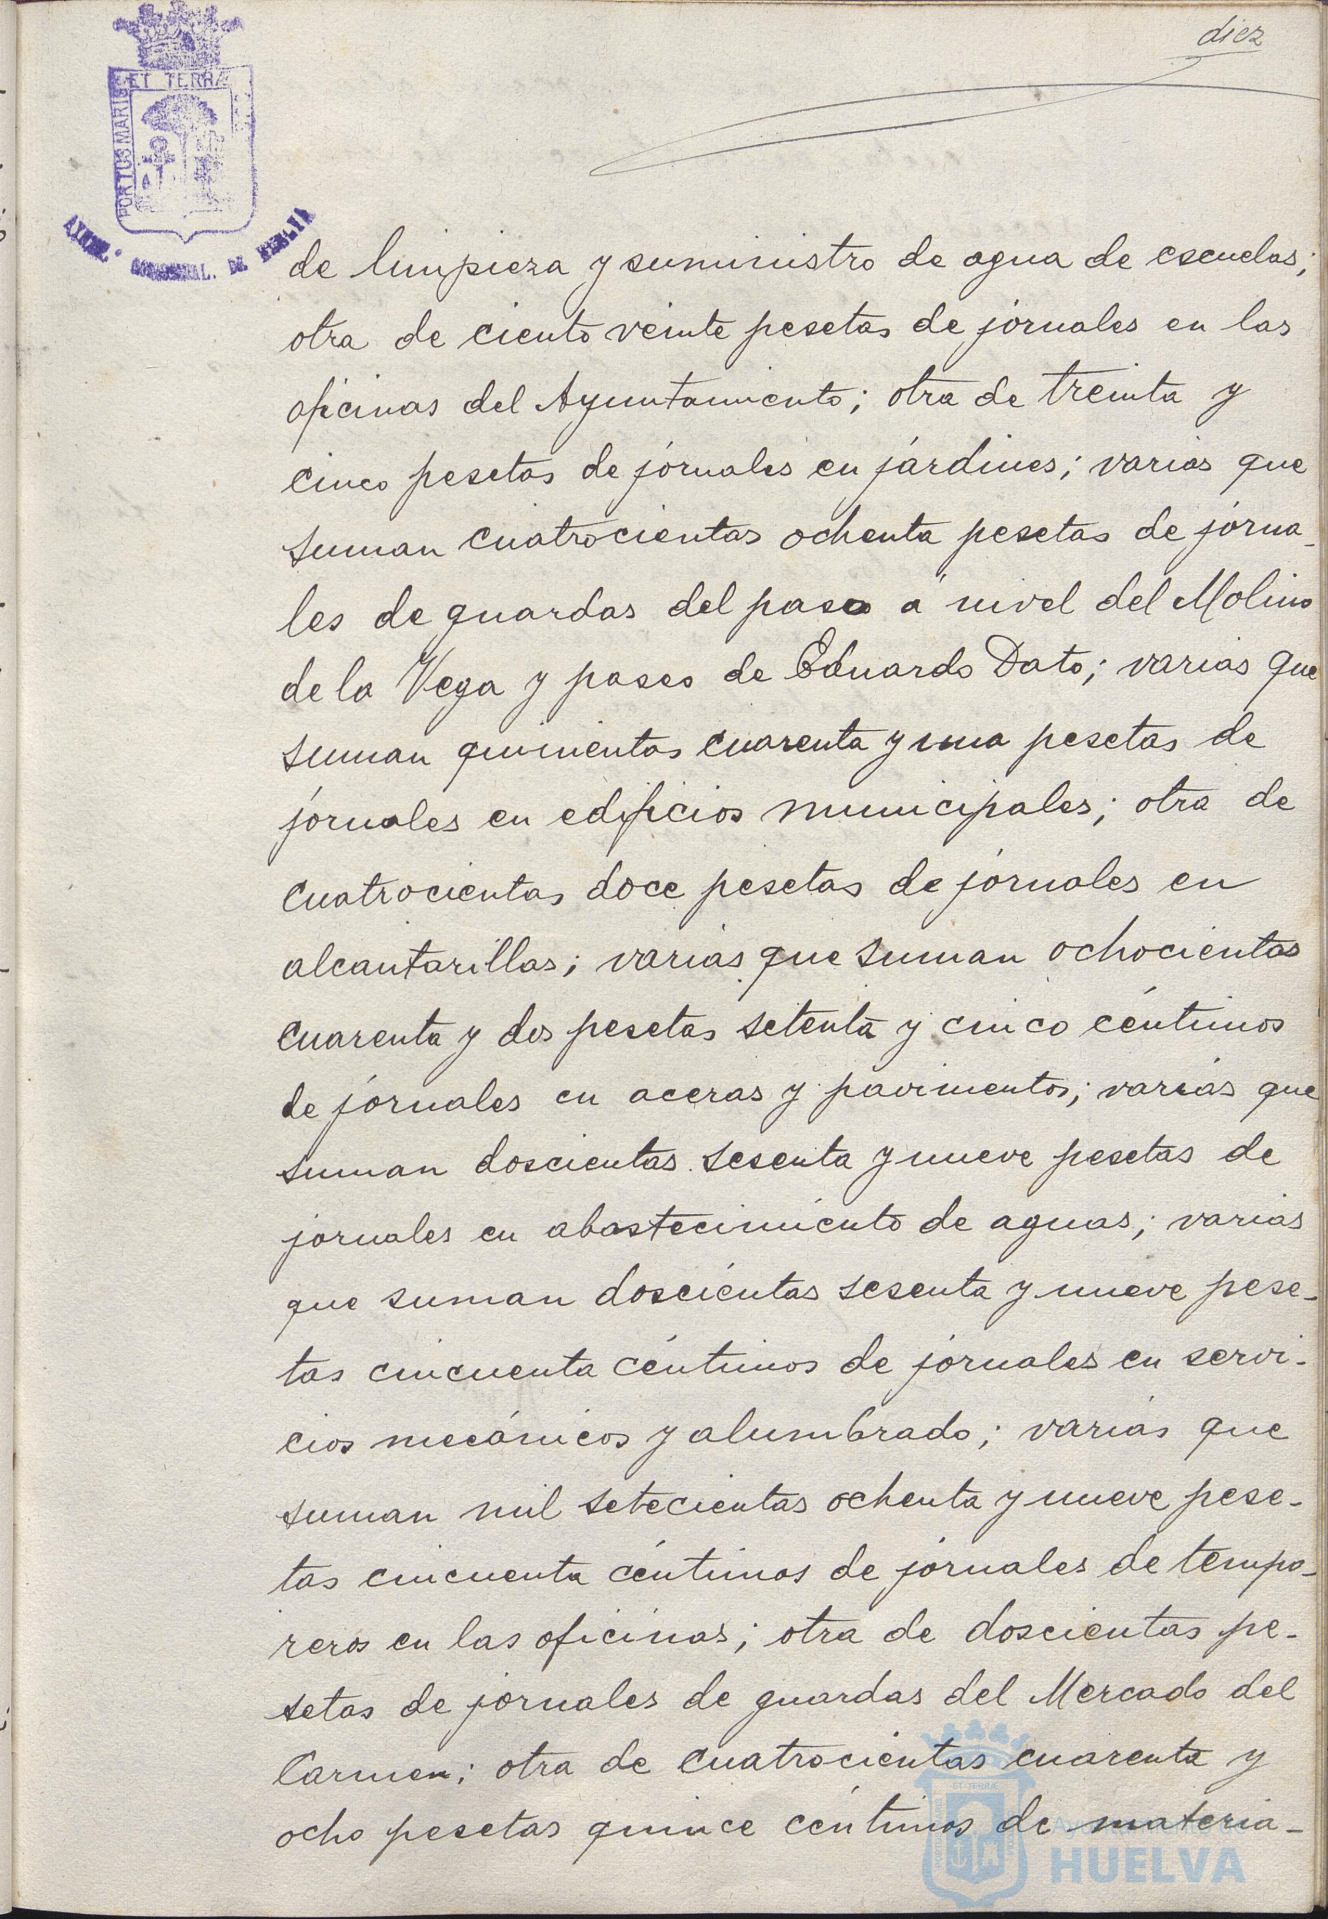 diez
ET TERRA
PORTUS MARIS
DE
de limpieza y suministro de agua de escuelas;
otra de ciento veinte pesetas de jornales en las
oficinas del Ayuntamiento; otra de treinta y
cinco pesetas de jornales en jardines; varias que
suman cuatrocientas ochenta pesetas de jorna-
les de guardas del paso a nivel del Molino
de la Vega y paseo de Eduardo Dato; varias que
suman quinientas cuarenta y una pesetas de
jornales en edificios municipales; otra de
cuatrocientas doce pesetas de jornales en
alcantarillas; varias que suman ochocientas
cuarenta y dos pesetas setenta y cinco céntimos
de jornales en aceras y pavimentos; varias que
suman doscientas sesenta y nueve pesetas de
jornales en abastecimiento de aguas; varias
que suman doscientas sesenta y nueve pese-
tas cincuenta céntimos de jornales en servi-
cios mecánicos y alumbrado; varias que
suman mil setecientas ochenta y nueve pese-
tas cincuenta céntimos de jornales de tempo-
reros en las oficinas; otra de doscientas pe-
setas de jornales de guardas del Mercado del
Carmen; otra de cuatrocientas cuarenta y
ocho pesetas quince céntimos de materia-
Ayuntamiento de
HUELVA